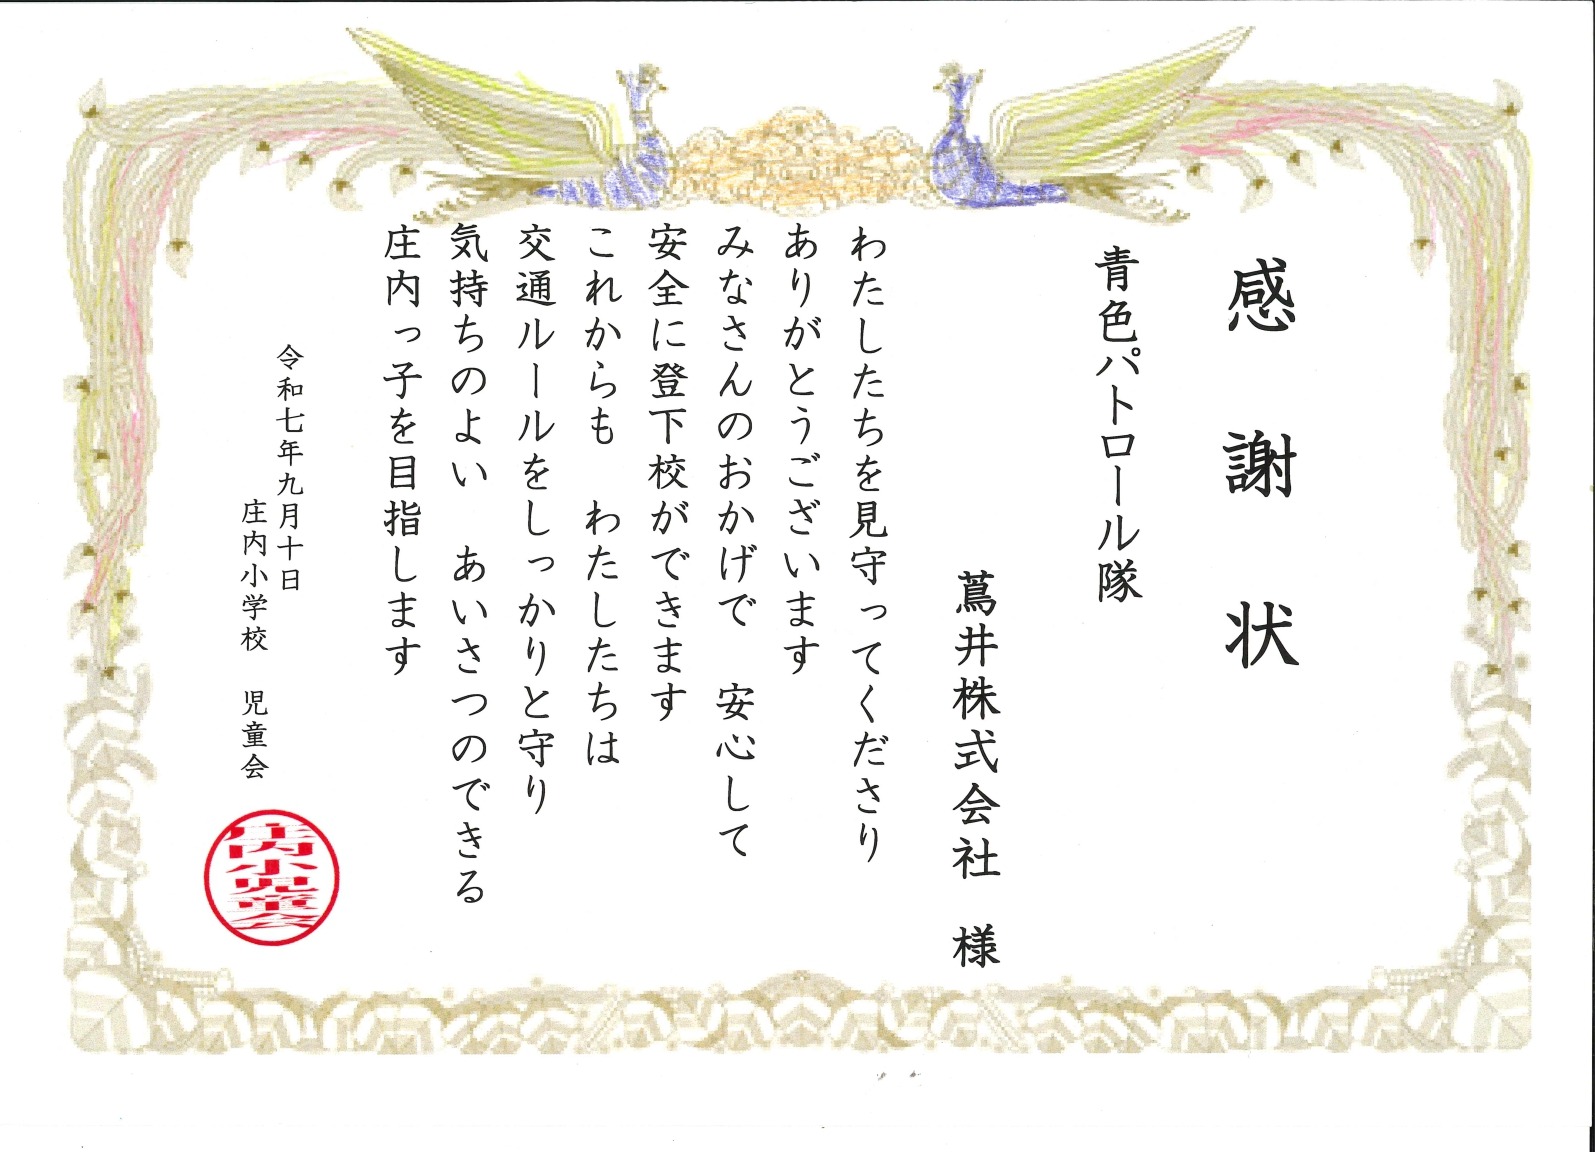 感謝状
青色パトロール隊
蔦井株式会社　様
わたしたちを見守ってくださり
ありがとうございます
みなさんのおかげで　安心して
安全に登下校ができます
これからも　わたしたちは
交通ルールをしっかりと守り
気持ちのよい　あいさつのできる
庄内っ子を目指します
令和七年九月十日
庄内小学校　児童会
庄内小児童会